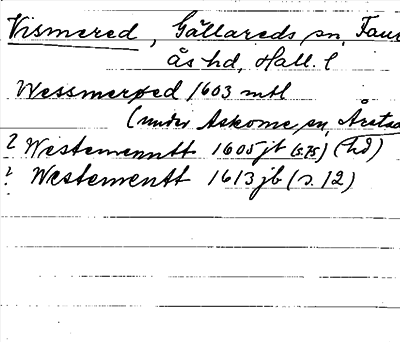 Vismered, Gällareds sn, Faur
ås hd, Hall. l
Wessmerød 1603 mtl
(under Askome sn, Årstad
? Westemenntt 1605 jb (s. 75) (hd)
? Westementt 1613 jb (s. 12)